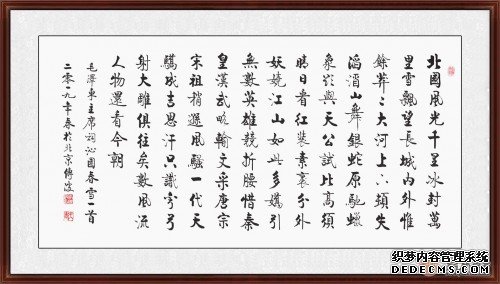 北國風光千里冰封萬
里雪飄望長城內外惟
餘莽〻大河上下頓失
滔滔山舞銀蛇原馳蠟
象欲與天公試比高須
晴日看紅裝素裹分外
妖嬈江山如此多嬌引
無數英雄競折腰惜秦
皇漢武略輸文采唐宗
宋祖稍遜風騷一代天
驕成吉思汗只識彎弓
射大雕俱往矣數風流
人物還看今朝
毛澤東主席詞沁園春雪一首
二零一九年春於北京
织梦内容管理系统
DEDECMS.COM